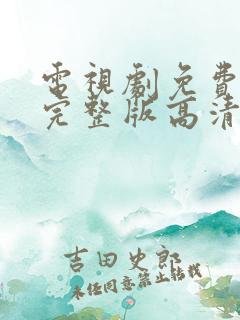 電視劇免費
完整版高清
吉田史郎
未经同意禁止转载